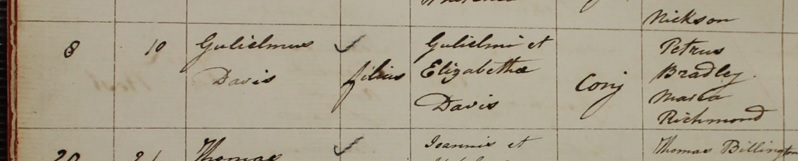 Nickson
8 10 Gulielmus filius Gulielmi et Conj Petrus
Davis Elizabethæ Bradley.
Davis Maria
Richmond
20 21 Thomas Joannis et Thomas Billington